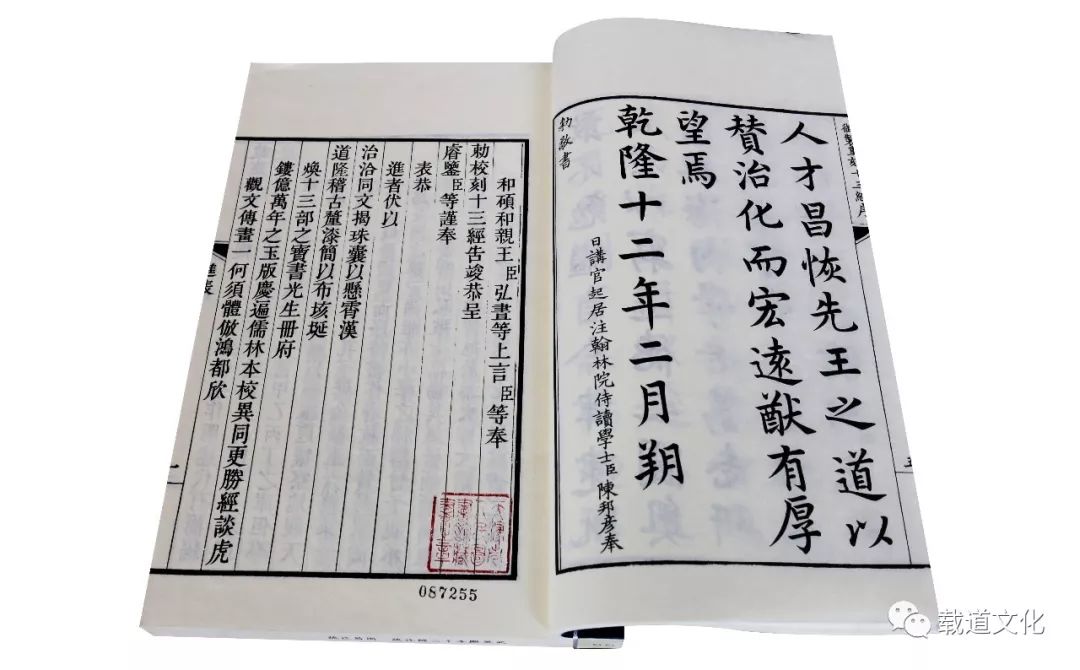 人才昌恢先王之道以
贊治化而宏遠猷有厚
望焉
乾隆十二年二月朔
日講官起居注翰林院侍讀學士臣陳邦彥奉
勅敬書
和碩和親王臣弘晝等上言臣等奉
勅校刻十三經告竣恭呈
睿鑒臣等謹奉
表恭
進者伏以
治洽同文揭珠囊以懸霄漢
道隆稽古釐漆簡以布垓埏
煥十三部之寶書光生冊府
鏤億萬年之玉版慶遍儒林本校異同更勝經談虎
觀文傳畫一何須體倣鴻都欣
進表
087255
载道文化